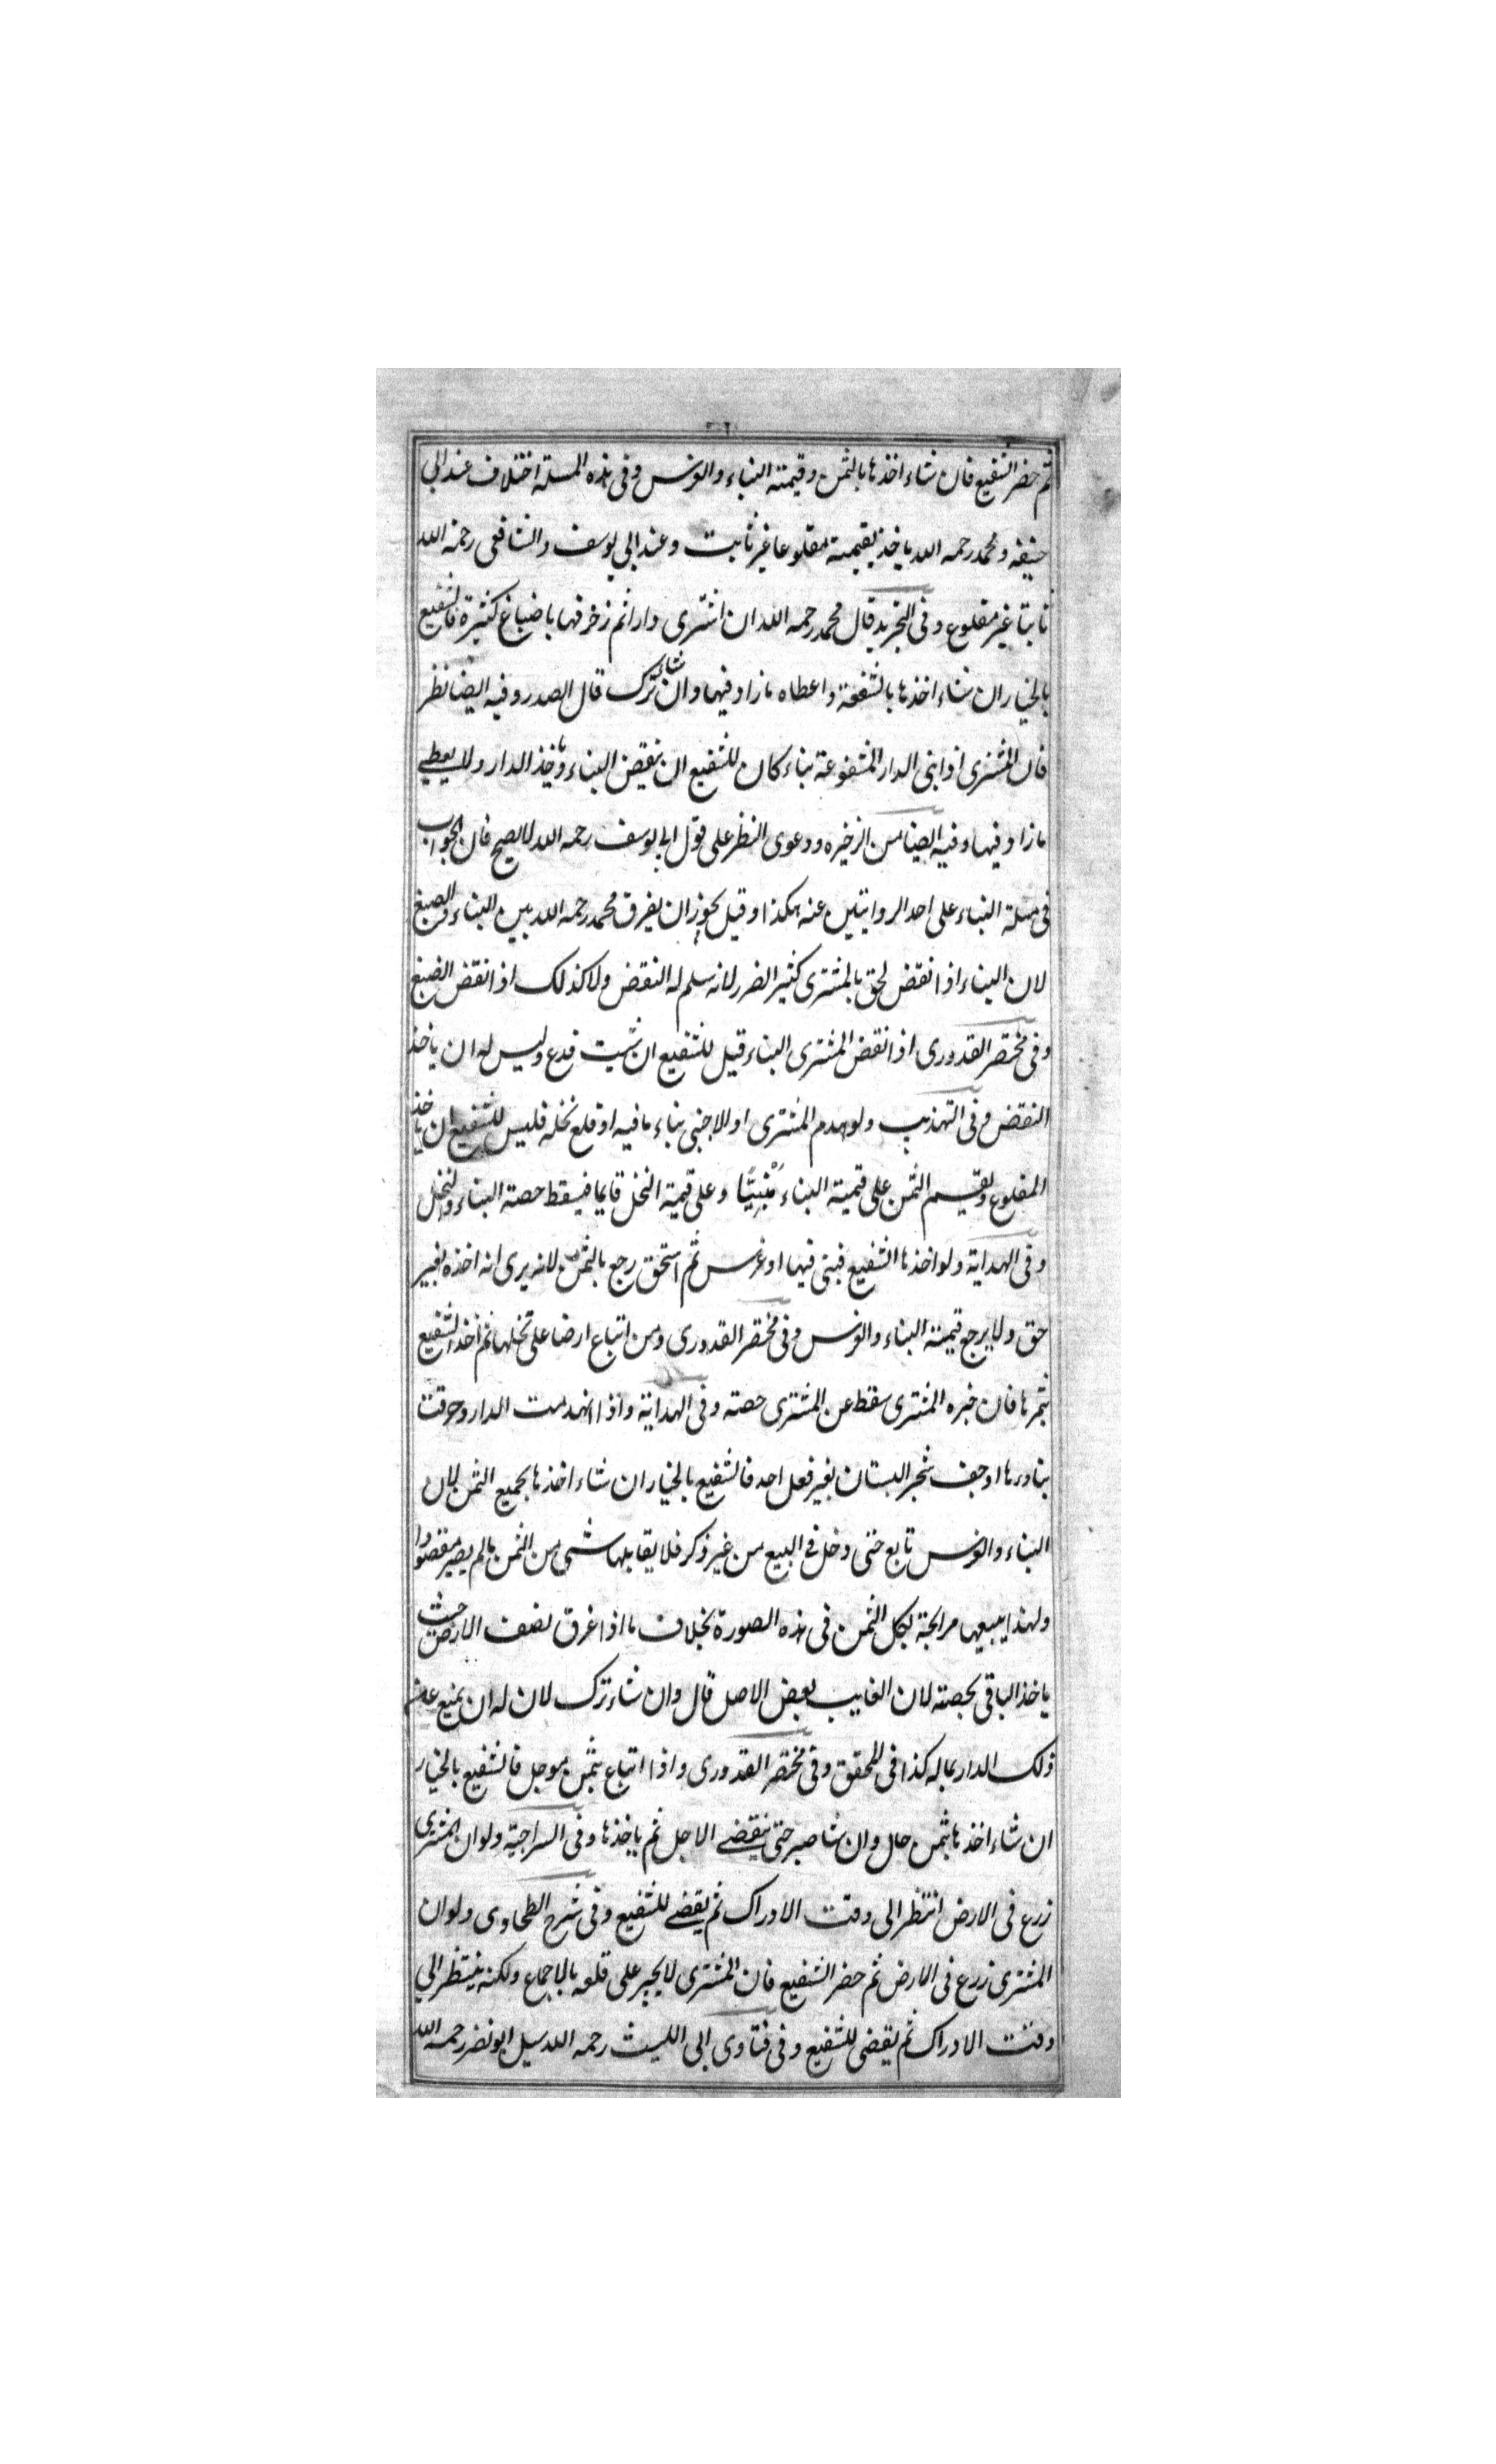 ثم حضر الشفيع فان شاء اخذها بالثمن وقيمة البناء والغرس وفى هذه المسئلة اختلاف عند ابى
حنيفه ومحمد رحمه الله ياخذ بقيمته مقلوعا غير ثابت وعند ابي يوسف والشافعى رحمه الله
ثابتا غير مقلوع وفى التجريد قال محمد رحمه الله ان اشترى دارا ثم زخرفها باصباغ كثيرة فالشفيع
بالخيار ان شاء اخذها بالشفعة واعطاه ما زاد فيها وان شاء ترك قال الصدر وفيه ايضا نظر
فان المشترى اذا بنى الدار المشفوعة بناء كان للشفيع ان ينقض البناء وياخذ الدار ولا يعطى
ما زاد فيها وفيه ايضا من الذخيره ودعوى النظر على قول ابى يوسف رحمه الله لا يصح فان الجواب
فى مسئلة البناء على احد الروايتين عنه هكذا وقيل يجوز ان يفرق محمد رحمه الله بين البناء والصبغ
لان البناء اذا نقض لحق بالمشترى كثير الضرر لانه سلم له النقض ولا كذلك اذا نقض الصبغ
وفى مختصر القدورى اذا نقض المشترى البناء قيل للشفيع ان شئت فدع وليس له ان ياخذ
النقض وفى التهذيب ولو هدم المشترى او الاجنبى بناء ما فيه او قلع نخله فليس للشفيع ان ياخذ
المقلوع ويقسم الثمن على قيمة البناء مَبْنِيًّا وعلى قيمة النخل قايما فيسقط حصته البناء والنخل
وفى الهداية ولو اخذها الشفيع فبنى فيها او غرس ثم استحق رجع بالثمن لانه يرى انه اخذه بغير
حق ولا يرجع قيمة البناء والغرس وفى مختصر القدورى ومن ابتاع ارضا على نخلها ثم اخذ الشفيع
بثمرها فان خبره المشترى سقط عن المشترى حصته وفى الهداية واذا انهدمت الدار وحرقت
بناءها او جف شجر البستان بغير فعل احد فالشفيع بالخيار ان شاء اخذها بجميع الثمن لان
البناء والغرس تابع حتى دخل فى البيع من غير ذكر فلا يقابلها شى من الثمن ما لم يصير مقصودا
ولهذا يبيعها مرابحة بكل الثمن فى هذه الصورة بخلاف ما اذا غرق نصف الارض حيث
ياخذ الباقى بحصته لان الغايب بعض الاصل قال وان شاء ترك لان له ان يمنع عن
ذلك الدار بماله كذا فى المحقق وفى مختصر القدورى واذا ابتاع بثمن موجل فالشفيع بالخيار
ان شاء اخذها بثمن حال وان شا صبر حتى ينقضى الاجل ثم ياخذها وفى السراجية ولو ان المشترى
زرع فى الارض انتظر الى وقت الادراك ثم يقضى للشفيع وفى شرح الطحاوى ولو ان
المشترى زرع فى الارض ثم حضر الشفيع فان المشترى لا يجبر على قلعه بالاجماع ولكنه ينتظر الى
وقت الادراك ثم يقضى للشفيع وفى فتاوى ابى الليث رحمه الله سيل ابو نصر رحمه الله